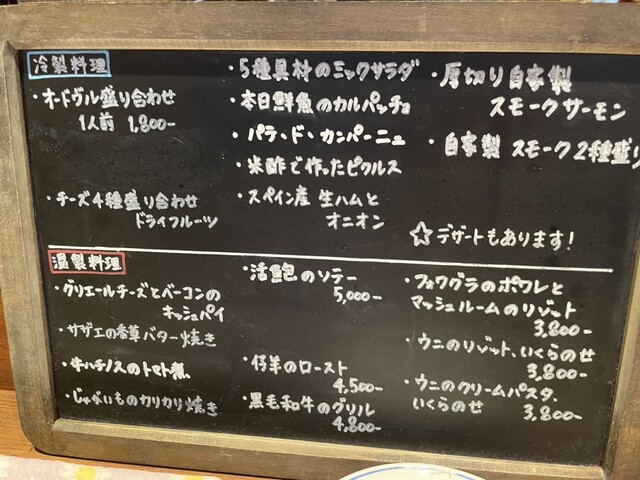 冷製料理
・オードヴル盛り合わせ
1人前 1,800-
・チーズ4種盛り合わせ
ドライフルーツ
・5種具材のミックスサラダ
・本日鮮魚のカルパッチョ
・パテ・ド・カンパーニュ
・米酢で作ったピクルス
・スペイン産 生ハムと
オニオン
・厚切り自家製
スモークサーモン
・自家製 スモーク2種盛り
☆デザートもあります!
温製料理
・グリエールチーズとベーコンの
キッシュパイ
・サザエの香草バター焼き
・牛ハチノスのトマト煮
・じゃがいものカリカリ焼き
・活鮑のソテー
5,000-
・仔羊のロースト
4,500-
・黒毛和牛のグリル
4,800-
・フォワグラのポワレと
マッシュルームのリゾット
3,800-
・ウニのリゾット、いくらのせ
3,800-
・ウニのクリームパスタ、
いくらのせ 3,800-